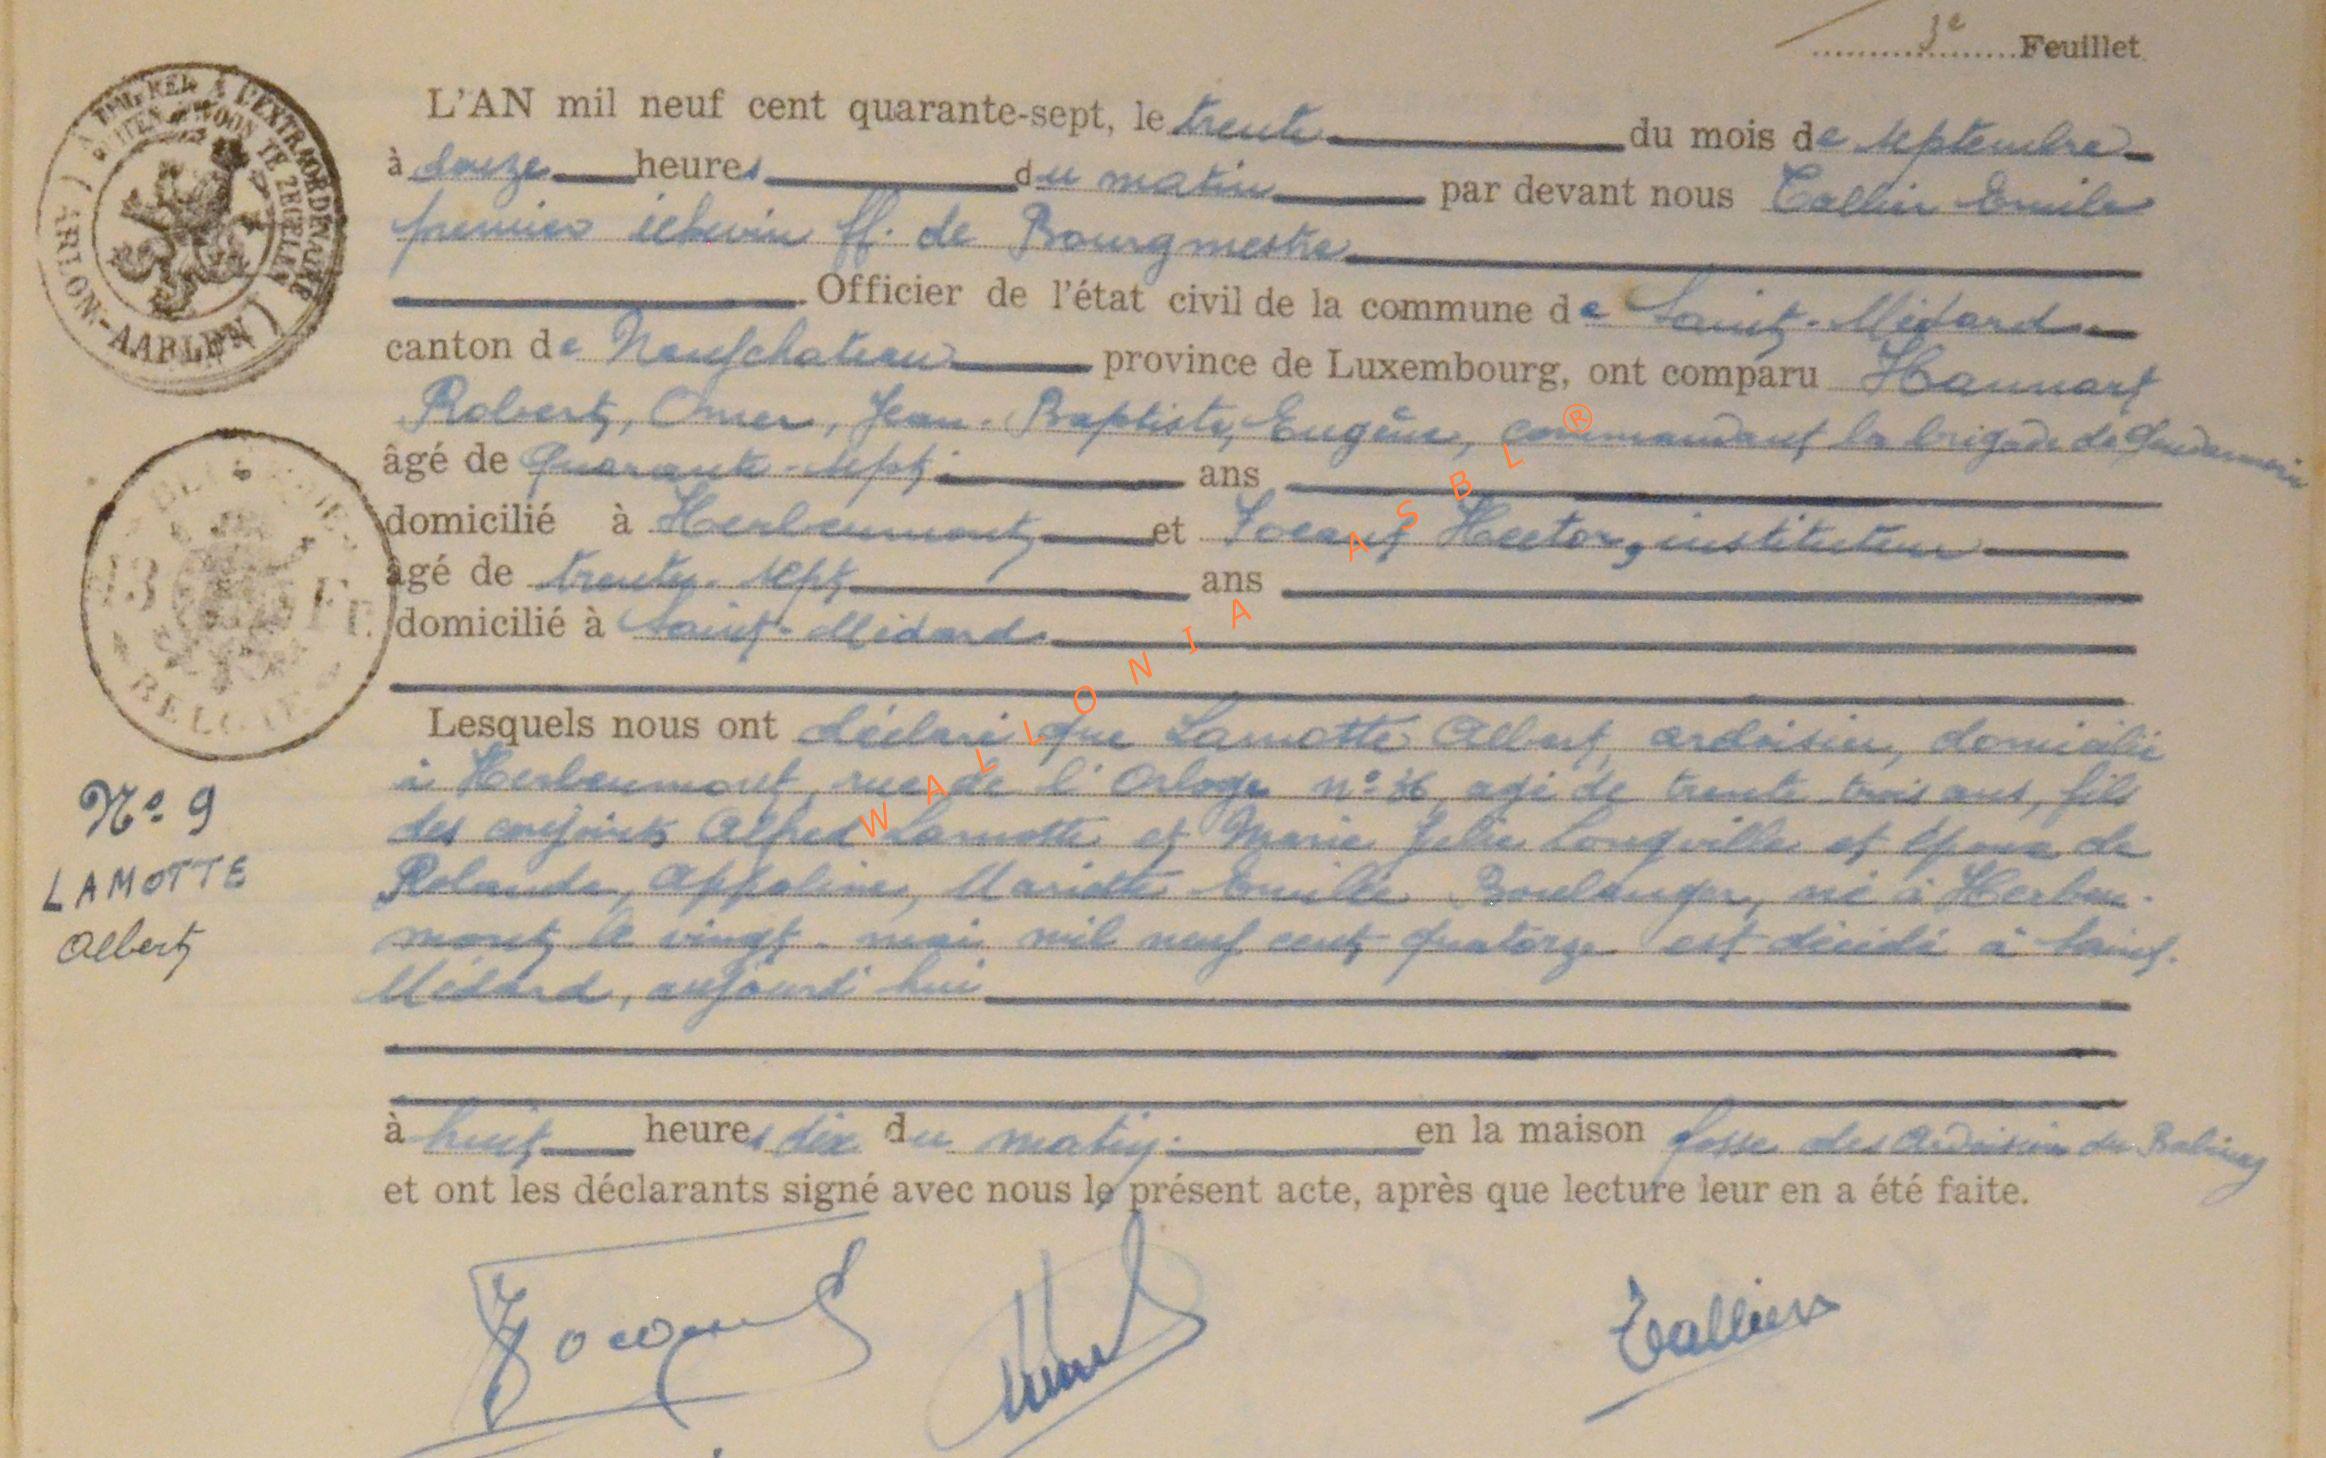 3e Feuillet
L'AN mil neuf cent quarante-sept, le trente du mois de septembre
à douze heures du matin par devant nous Tallier Emile
premier échevin ff. de Bourgmestre
Officier de l'état civil de la commune de Saint-Médard
canton de Neufchateau province de Luxembourg, ont comparu Hannart
Robert, Omer, Jean-Baptiste, Eugène, commandant la brigade de Gendarmerie
âgé de quarante-sept ans
domicilié à Herbeumont et Hector, instituteur
âgé de trente-sept ans
domicilié à Saint-Médard
Lesquels nous ont déclaré que Lamotte Albert, ardoisier, domicilié
à Herbeumont, rue de l'Orloge n° 36, agé de trente trois ans, fils
des conjoints Alfred Lamotte et Marie Julie Longville et époux de
Rolande, Appoline, Mariette Emilie Boulanger, né à Herbeu-
mont le vingt-mai mil neuf cent quatorze est décédé à Saint-
Médard, aujourd'hui
à huit heures dix du matin en la maison fosse des ardoisières du
et ont les déclarants signé avec nous le présent acte, après que lecture leur en a été faite.
Tallier
ARLON-AARLEN
3 Fr.
BELGIE
N° 9
LAMOTTE
Albert
WALLONIA ASBL ®